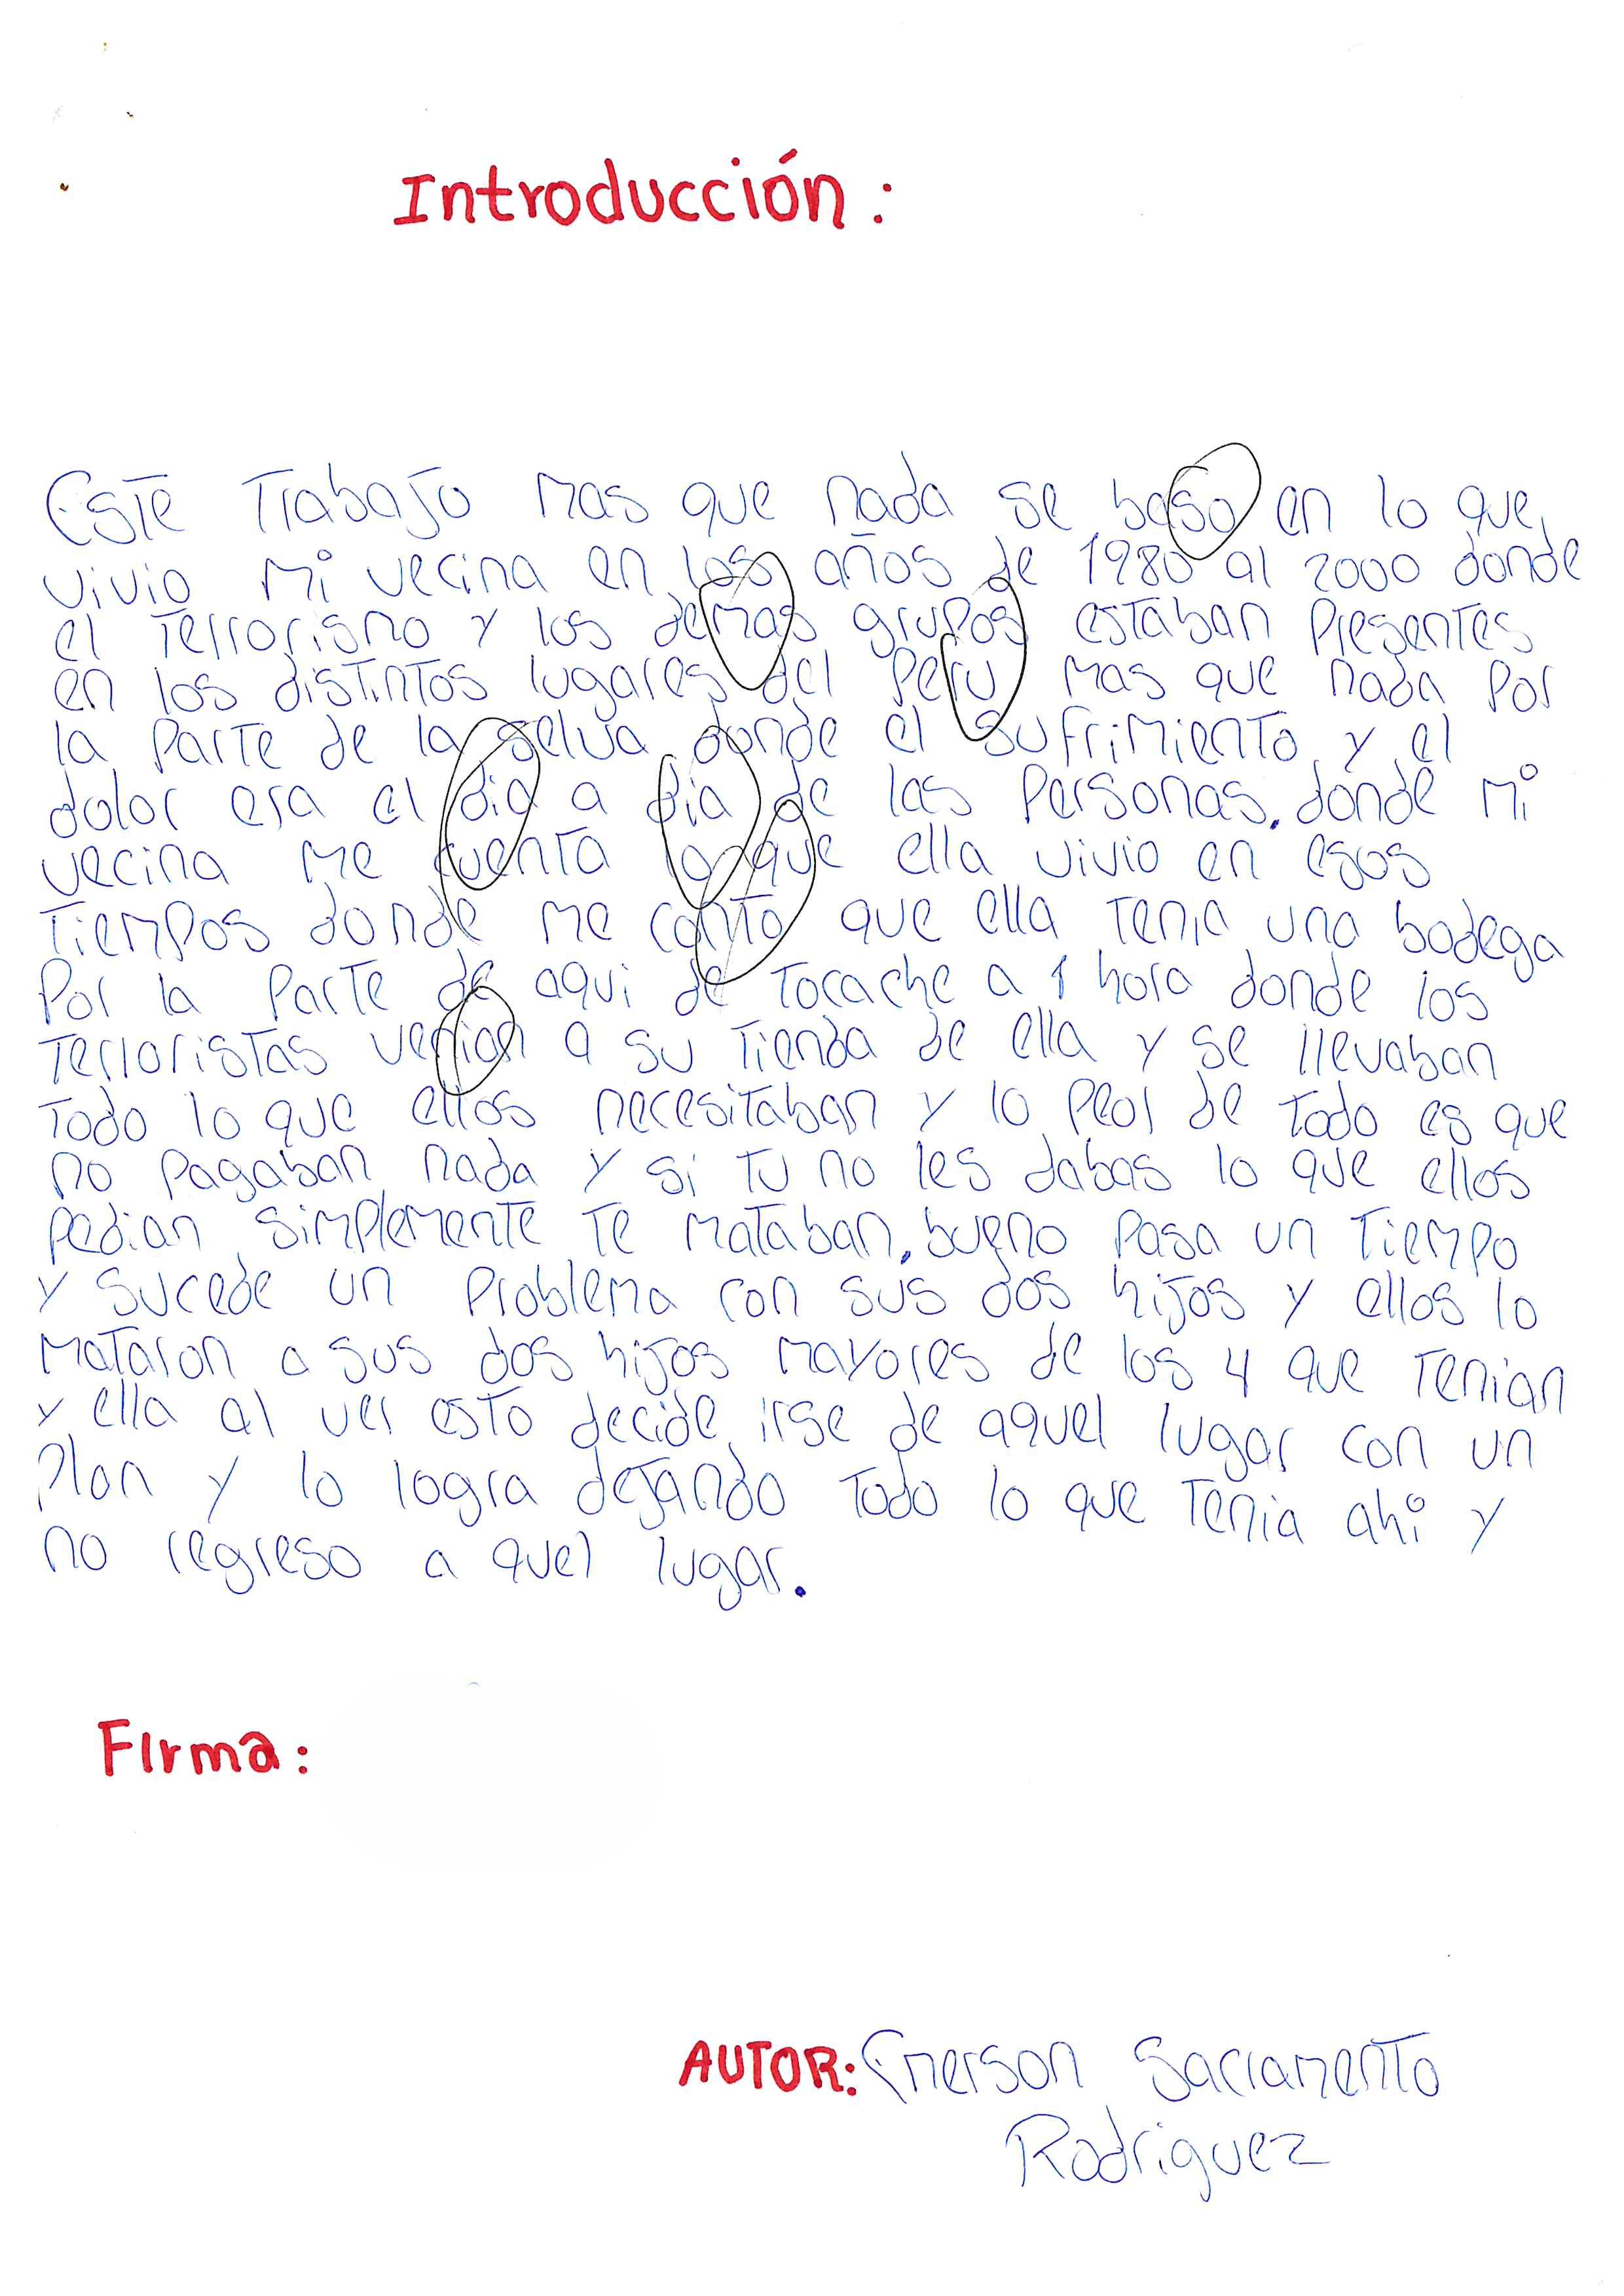 Introducción:
Este Trabajo mas que nada se baso en lo que
vivio mi vecina en los años de 1980 al 2000 donde
el Terrorismo y los demas grupos estaban Presentes
en los distintos lugares del Peru mas que nada Por
la Parte de la selva donde el sufrimiento y el
dolor era el dia a dia de las Personas. donde mi
vecina me cuenta lo que ella vivio en esos
Tiempos donde me conto que ella Tenia una bodega
Por la Parte de aqui de Tocache a 1 hora donde los
Terroristas venian a su Tienda de ella y se llevaban
Todo lo que ellos necesitaban y lo Peor de Todo es que
no Pagaban nada y si Tu no les dabas lo que ellos
Pedian simplemente Te mataban. bueno Pasa un Tiempo
y sucede un Problema con sus dos hijos y ellos lo
mataron a sus dos hijos mayores de los 4 que Tenian
y ella al ver esto decide irse de aquel lugar con un
Plan y lo logra dejando Todo lo que Tenia ahi y
no regreso a quel lugar.
Firma:
AUTOR: Emerson Sacramento
Rodriguez